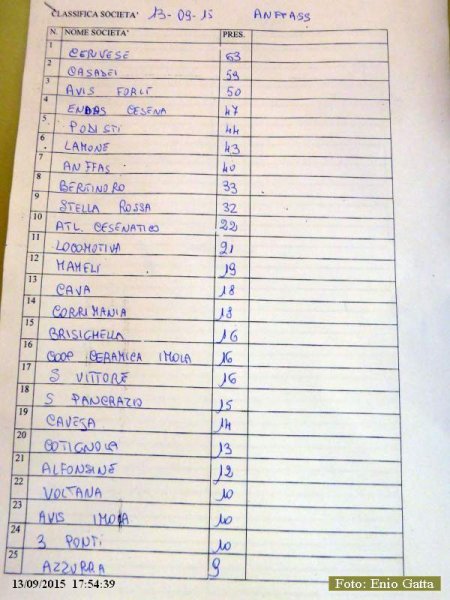 CLASSIFICA SOCIETA' 13-09-15 ANFFASS
N. NOME SOCIETA' PRES.
1 CERVESE 63
2 CASADEI 59
3 AVIS FORLÌ 50
4 ENDAS CESENA 47
5 PODISTI 44
6 LAMONE 43
7 ANFFAS 40
8 BERTINORO 33
9 STELLA ROSSA 32
10 ATL. CESENATICO 22
11 LOCOMOTIVA 21
12 MAMELI 19
13 CAVA 18
14 CORRIMANIA 18
15 BRISIGHELLA 16
16 COOP CERAMICA IMOLA 16
17 S VITTORE 16
18 S PANCRAZIO 15
19 CAVEJA 14
20 COTIGNOLA 13
21 ALFONSINE 12
22 VOLTANA 10
23 AVIS IMOLA 10
24 3 PONTI 10
25 AZZURRA 9
13/09/2015 17:54:39
Foto: Enio Gatta